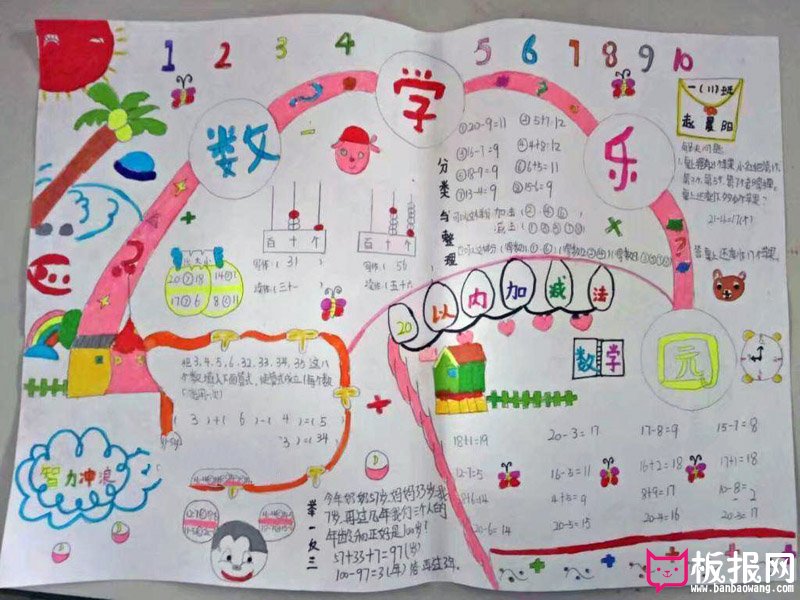 1 2 3 4 5 6 7 8 9 10
数 学 乐 园
一(11)班
赵晨阳
分类与整理
①20-9=11
③16-7=9
⑤18-9=9
⑦13-4=9
②5+7=12
④4+8=12
⑥6+5=11
⑧15-6=9
百 十 个
写作(31)
读作(三十一)
百 十 个
写作(56)
读作(五十六)
比大小
20>18
17>6
20以内加减法
数学
把3,4,5,6,32,33,34,35这八
个数填入下面算式,使等式成立(每个数
只能用一次)
(3)+(6)-(4)=(5)
智力冲浪
举一反三
今年奶奶57岁,妈妈33岁,我
7岁,再过几年我们三个人的
年龄的和正好是100岁?
57+33+7=97(岁)
100-97=3(年)
18+1=19
20-3=17
17-8=9
15-7=8
12-7=5
16-5=11
16+2=18
17+1=18
8+6=14
4+5=9
8+9=17
20-6=14
20-5=15
20-4=16
20-3=17
板报网
www.banbaowang.com